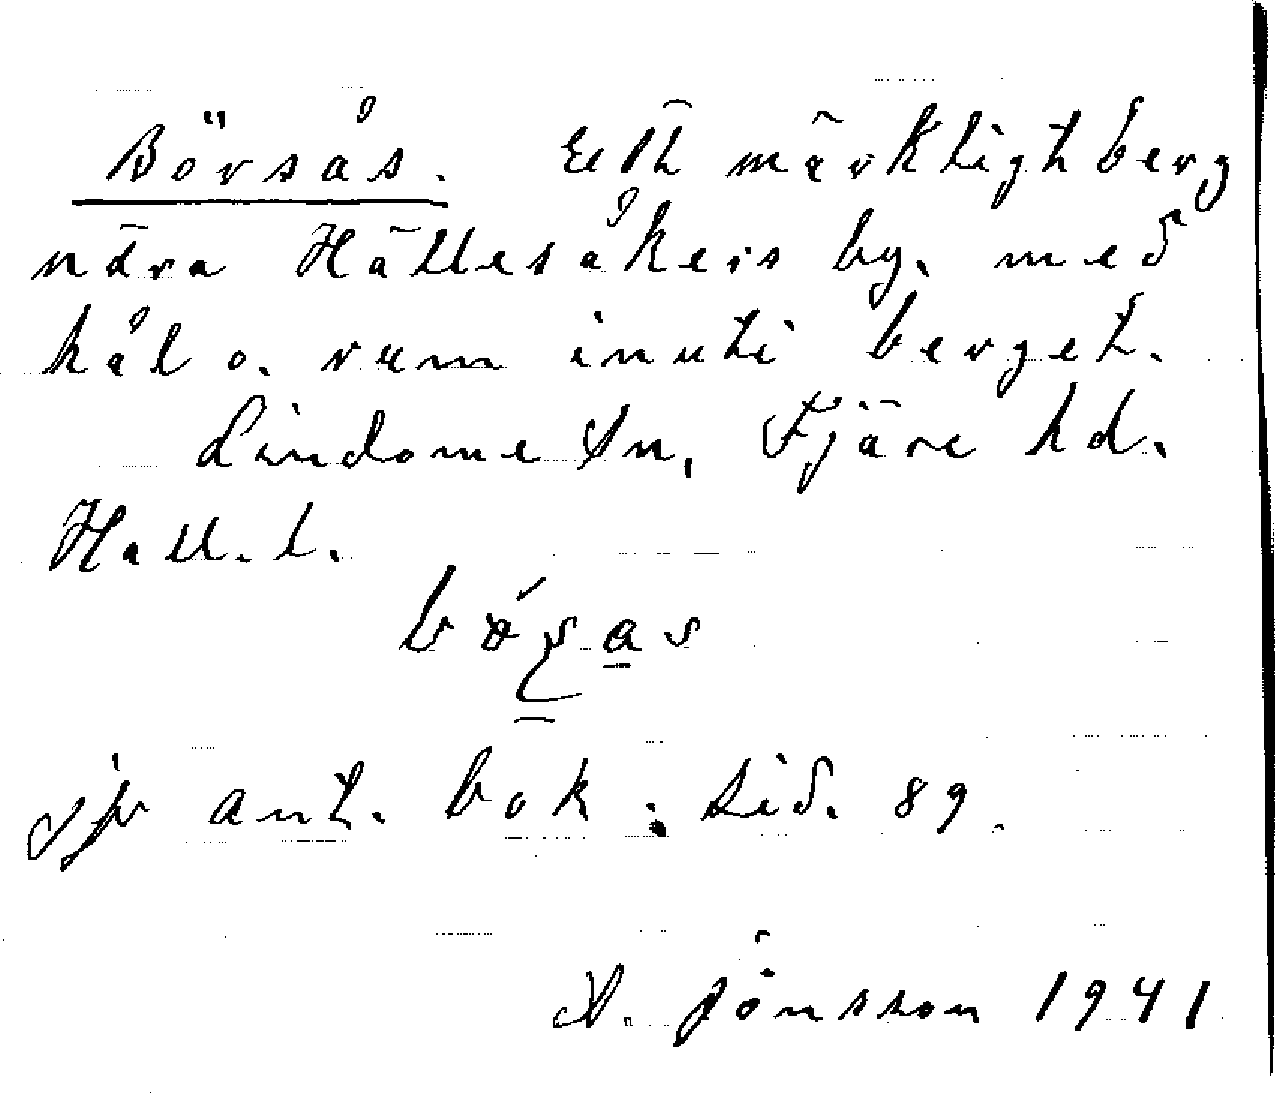 Börsås. Ett märkligt berg
nära Hällesåkers by. med
hål o. rum inuti berget.
Lindome Sn, Fjäre hd.
Hall. l.
ant. bok: sid. 89.
A. Jönsson 1941